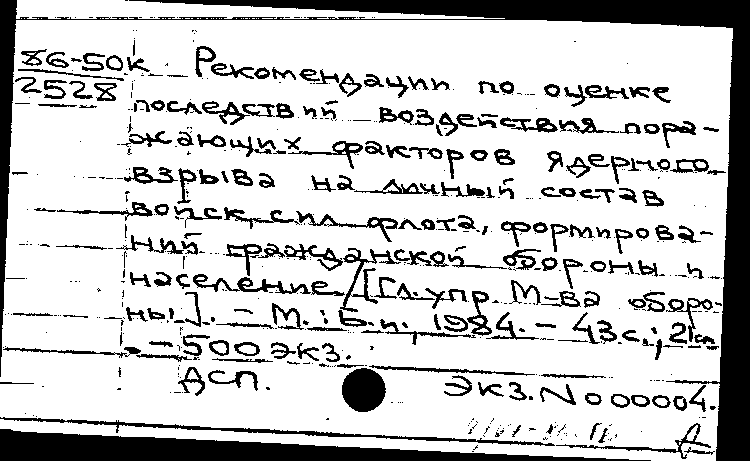 86-50к Рекомендации по оценке
2528 последствий воздействия пора-
жающих факторов ядерного
взрыва на личный состав
войск, сил флота, формирова-
ний гражданской обороны и
население / [Гл. упр. М-ва оборо-
ны]. - М.: Б.и., 1984. - 43 с.; 21 см
. - 500 экз.
ДСП. Экз. № 00004.